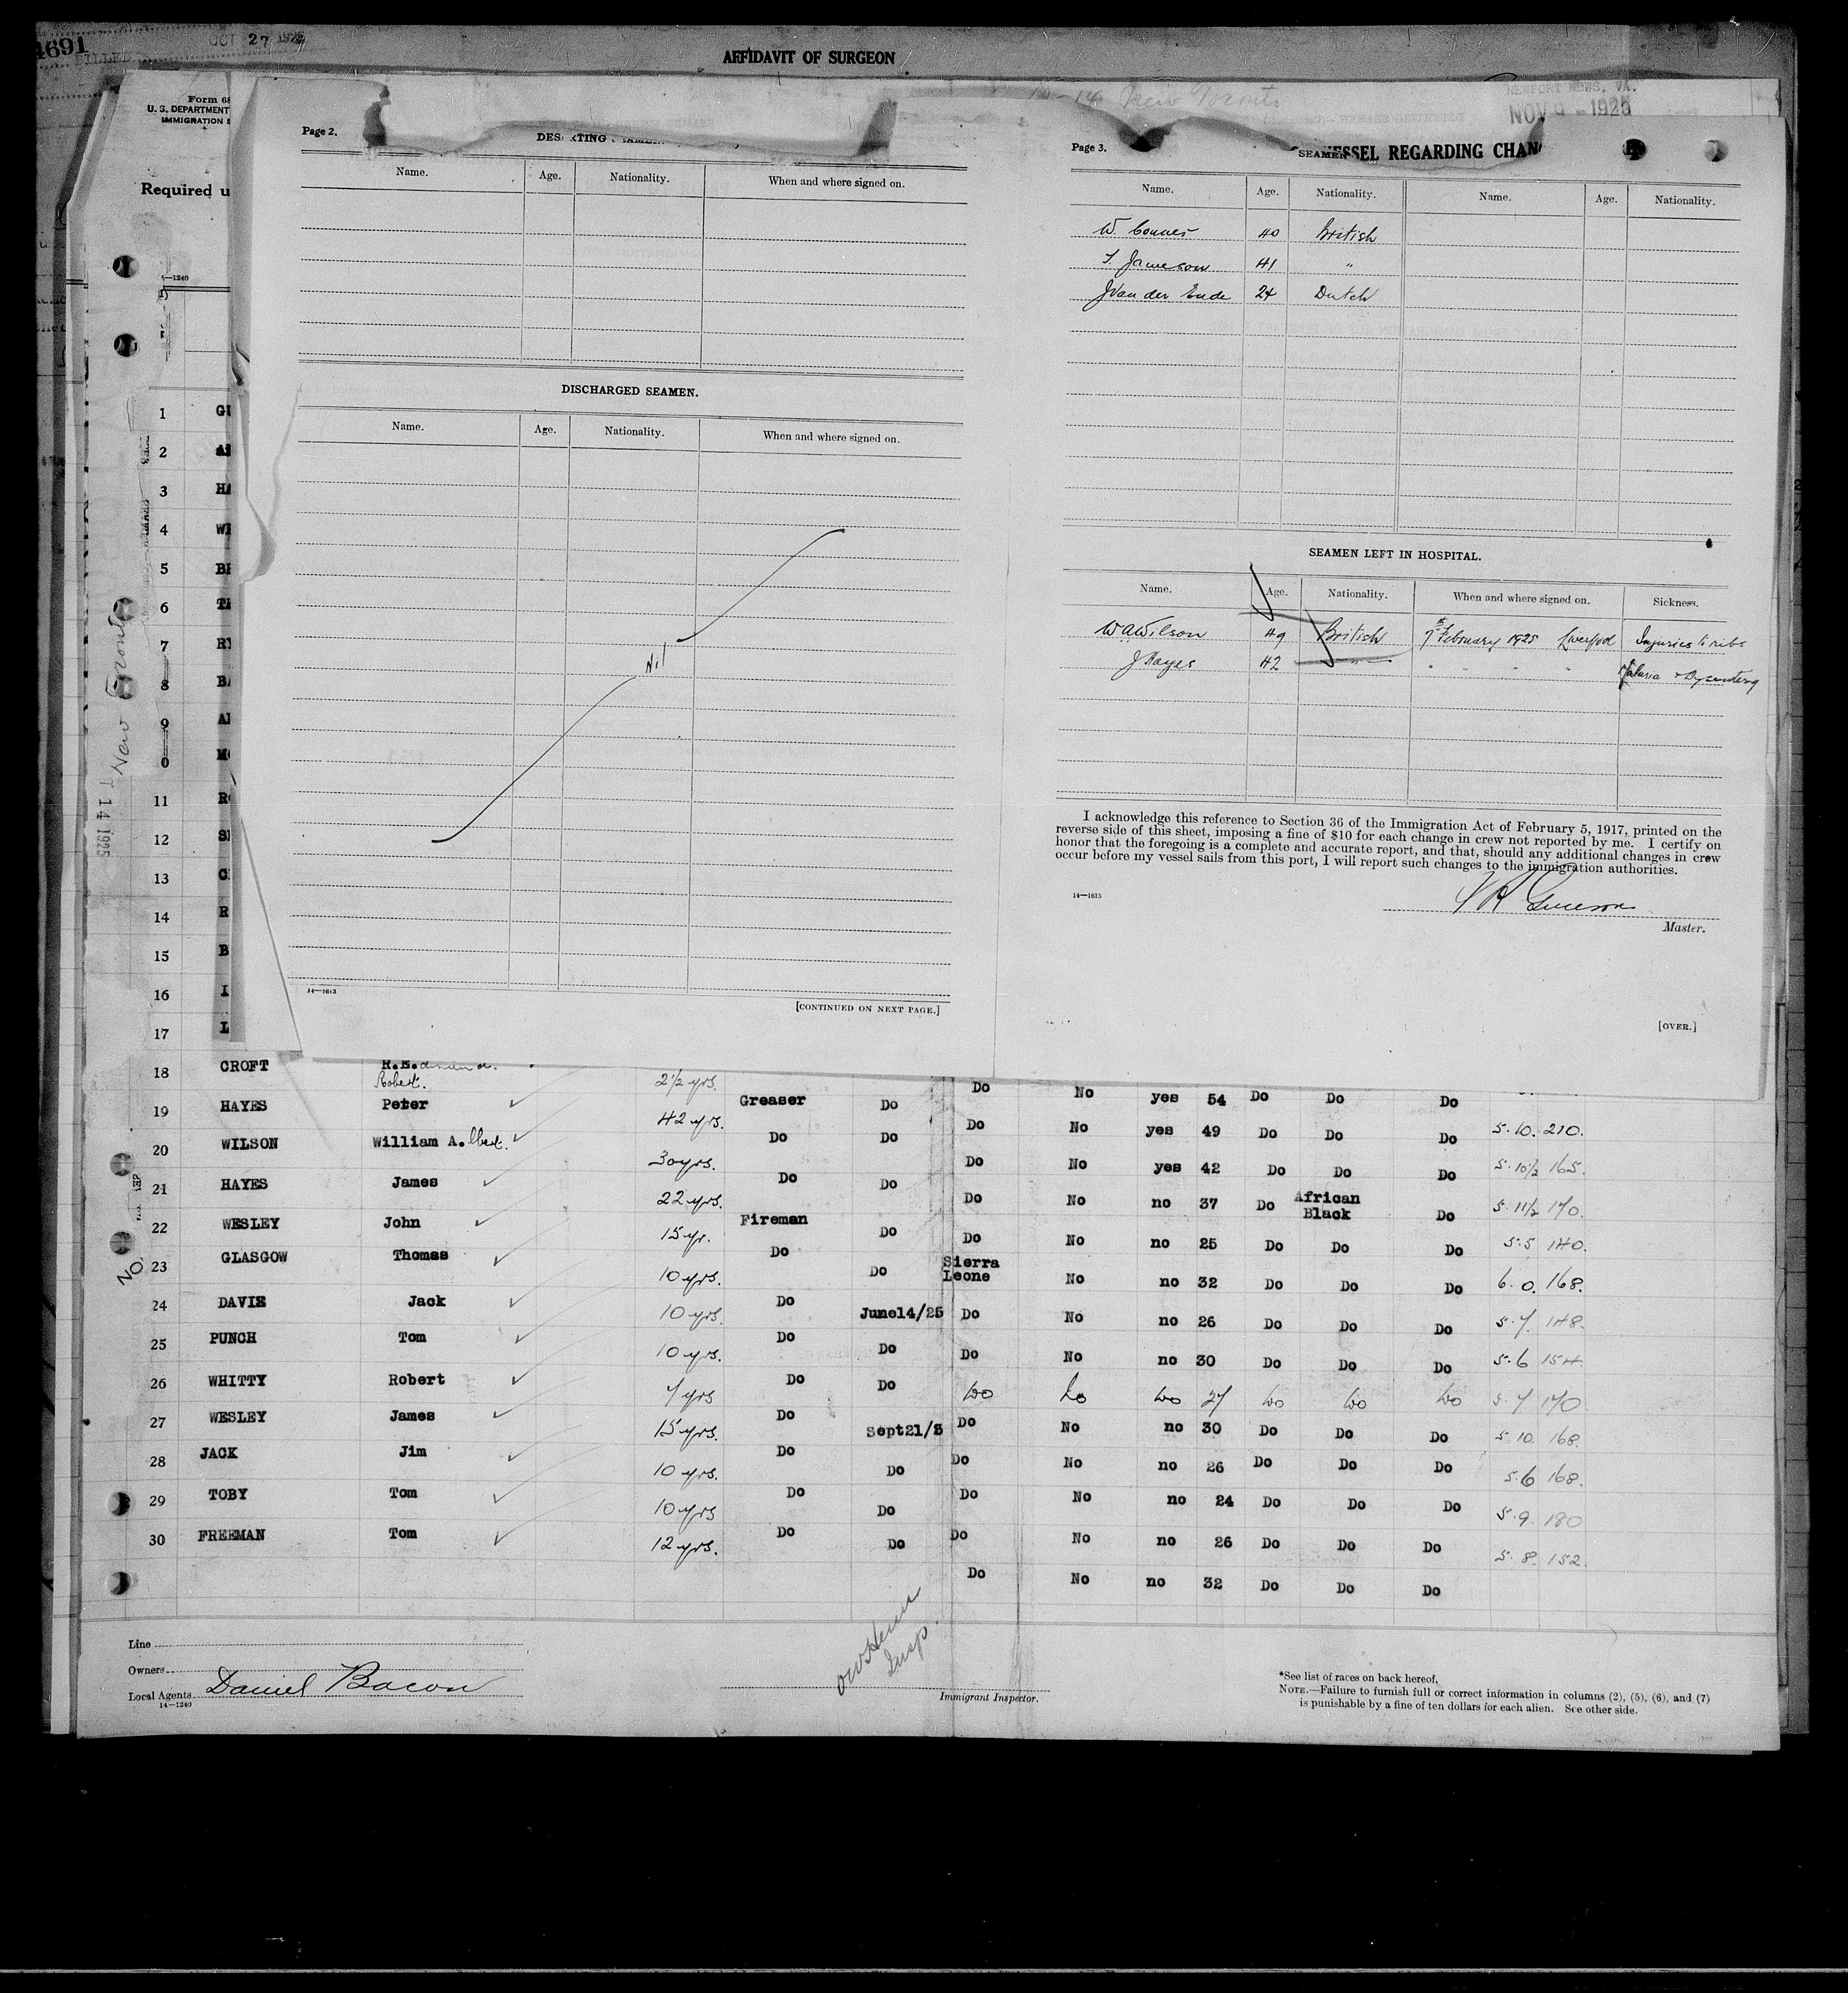 4691
BILLED
OCT 27 1925
AFFIDAVIT OF SURGEON
10-14 New Toronto
NEWPORT NEWS, VA.
NOV 9 - 1925
Form 68
U. S. DEPARTMENT
IMMIGRATION S
Required u
14—1240
Page 2.
DESERTING SEAMEN
Name. Age. Nationality. When and where signed on.
DISCHARGED SEAMEN.
Name. Age. Nationality. When and where signed on.
Nil
14—1613
[CONTINUED ON NEXT PAGE.]
Page 3.
SEAMEN
VESSEL REGARDING CHAN
Name. Age. Nationality. Name. Age. Nationality.
W. Conner 40 British
Jameson 41 "
J Van der Ende 24 Dutch
SEAMEN LEFT IN HOSPITAL.
Name. Age. Nationality. When and where signed on. Sickness.
W A Wilson 49 British 7th February 1925 Liverpool Injuries to ribs
J Hayes 42 " " " " " Malaria & Dysentery
I acknowledge this reference to Section 36 of the Immigration Act of February 5, 1917, printed on the
reverse side of this sheet, imposing a fine of $10 for each change in crew not reported by me. I certify on
honor that the foregoing is a complete and accurate report, and that, should any additional changes in crew
occur before my vessel sails from this port, I will report such changes to the immigration authorities.
14—1613
Master.
[OVER.]
New Toronto
T 14 1925
1 GU
2 AR
3 HA
4 WI
5
6
7 RY
8 BA
9
0 MO
11 RO
12
13 C
14 R
15 B
16
17 L
18 CROFT R.E. 2½ yrs. Do No yes 54 Do Do Do
Robert.
19 HAYES Peter 42 yrs. Greaser Do Do No yes 49 Do Do Do 5.10. 210.
20 WILSON William A.lbert. 30 yrs. Do Do Do No yes 42 Do Do Do 5.10½ 165.
21 HAYES James 22 yrs. Do Do Do No no 37 Do African Black Do 5.11½ 170.
22 WESLEY John 15 yr. Fireman Do Do No no 25 Do Do Do 5.5 140.
23 GLASGOW Thomas 10 yrs. Do Do Sierra Leone No no 32 Do Do Do 6.0. 168.
24 DAVIE Jack 10 yrs. Do June14/25 Do No no 26 Do Do Do 5.7. 148.
25 PUNCH Tom 10 yrs. Do Do Do No no 30 Do Do Do 5.6 154
26 WHITTY Robert 7 yrs Do Do Do No Do 27 Do Do Do 5.7 170
27 WESLEY James 15 yrs. Do Sept21/2 Do No no 30 Do Do Do 5.10. 168.
28 JACK Jim 10 yrs. Do Do Do No no 26 Do Do Do 5.6 168.
29 TOBY Tom 10 yrs Do Do Do No no 24 Do Do Do 5.9. 180
30 FREEMAN Tom 12 yrs. Do Do Do No no 26 Do Do Do 5.8. 152.
Do No no 32 Do Do Do
NO
Line
Owners
Local Agents Daniel Bacon
14—1240
Insp.
Immigrant Inspector.
*See list of races on back hereof,
NOTE.—Failure to furnish full or correct information in columns (2), (5), (6), and (7)
is punishable by a fine of ten dollars for each alien. See other side.